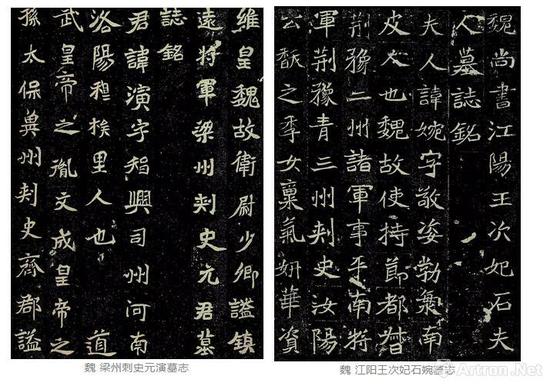 維皇魏故衛尉少卿謚鎮
遠將軍梁州刾史元君墓
誌銘
君諱演字智興司州河南
洛陽穆族里人也 道
武皇帝之胤文成皇帝之
孫太保兾州刾史齊郡謚
魏 梁州刺史元演墓志
魏尚書江陽王次妃石夫
人墓誌銘
夫人諱婉字敬姿勃海南
皮人也魏故使持節都督
荆豫二州諸軍事平南將
軍荆豫青三州刾史汝陽
公馛之季女稟氣妍華資
魏 江阳王次妃石婉墓志
Artron.Net